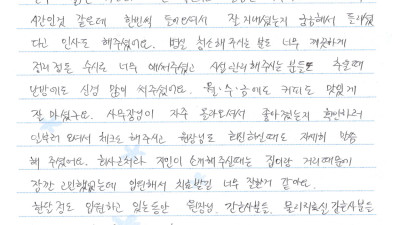 시간인것 같은데 한번씩 들어오셔서 잘 지내셨는지 궁금해서 들리셨
다고 인사도 해주셨어요. 병실 청소해 주시는 분도 너무 깨끗하게
정리 정돈 수시로 너무 애써주셨고 시설관리해주시는 분들도 추울때
난방에도 신경 많이 써주셨어요. 월·수·금에도 커피도 맛있게
잘 마셨구요. 사무장님이 자주 올라오셔서 좋아졌는지 확인하러
일부러 오셔서 체크도 해주시고 원장님도 회진하실때도 자세히 말씀
해 주셨어요. 회사근처라 지인이 소개해주실때는 집이랑 거리때문에
잠깐 고민했었는데 입원해서 치료받길 너무 잘한거 같아요.
한달정도 입원하고 있는동안 원장님, 간호사분들, 물리치료실 직원분들